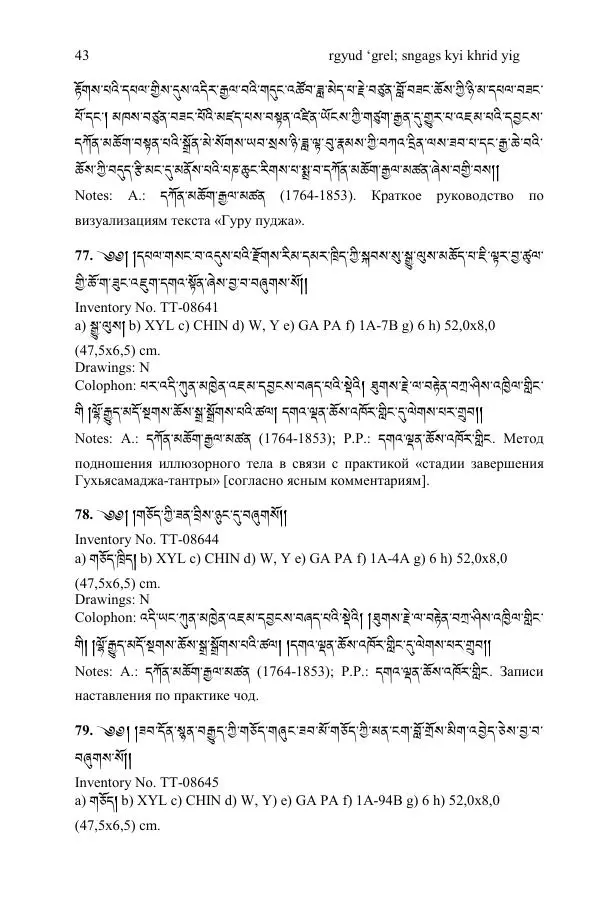 43 rgyud ‘grel; sngags kyi khrid yig
རྟོགས་པའི་དཔལ་གྱིས་དུས་འདིར་རྒྱལ་བའི་གདུང་འཚོབ་ཟླ་མེད་པ་རྗེ་བཙུན་བློ་བཟང་ཆོས་ཀྱི་ཉི་མ་དཔལ་བཟང་
པོ་དང་། མཁས་བཙུན་བཟང་པོའི་མཛད་པས་བསྟན་འཛིན་ཡོངས་ཀྱི་གཙུག་རྒྱན་དུ་གྱུར་པ་འཇམ་པའི་དབྱངས་
དཀོན་མཆོག་བསྟན་པའི་སྒྲོན་མེ་སོགས་ཡབ་སྲས་ཉི་ཟླ་ལྟ་བུ་རྣམས་ཀྱི་བཀའ་དྲིན་ལས་ཟབ་པ་དང་རྒྱ་ཆེ་བའི་
ཆོས་ཀྱི་བདུད་རྩི་མང་དུ་མནོས་པའི་པཎ་ཆུང་རིགས་པ་སྨྲ་བ་དཀོན་མཆོག་རྒྱལ་མཚན་ཞེས་བགྱི་བས།།
Notes: A.: དཀོན་མཆོག་རྒྱལ་མཚན (1764-1853). Краткое руководство по
визуализациям текста «Гуру пуджа».
77. ༄༅། །དཔལ་གསང་བ་འདུས་པའི་རྫོགས་རིམ་དམར་ཁྲིད་ཀྱི་སྐབས་སུ་སྒྱུ་ལུས་མཆོད་པ་ཇི་ལྟར་བྱ་ཚུལ་
གྱི་ཆོ་ག་ཟུང་འཇུག་དགའ་སྟོན་ཞེས་བྱ་བ་བཞུགས་སོ།།
Inventory No. TT-08641
a) སྒྱུ་ལུས། b) XYL c) CHIN d) W, Y e) GA PA f) 1A-7B g) 6 h) 52,0x8,0
(47,5x6,5) cm.
Drawings: N
Colophon: པར་འདི་ཀུན་མཁྱེན་འཇམ་དབྱངས་བཞད་པའི་སྡེའི། ཐུགས་རྗེ་ལ་བརྟེན་བཀྲ་ཤིས་འཁྱིལ་གླིང་
གི །ལྷོ་རྒྱུད་མདོ་སྔགས་ཆོས་སྒྲ་སྒྲོགས་པའི་ཚལ། དགའ་ལྡན་ཆོས་འཁོར་གླིང་དུ་ལེགས་པར་གྲུབ།།
Notes: A.: དཀོན་མཆོག་རྒྱལ་མཚན (1764-1853); P.P.: དགའ་ལྡན་ཆོས་འཁོར་གླིང. Метод
подношения иллюзорного тела в связи с практикой «стадии завершения
Гухьясамаджа-тантры» [согласно ясным комментариям].
78. ༄༅། །གཅོད་ཀྱི་ཟིན་བྲིས་ཉུང་དུ་བཞུགསོ།།
Inventory No. TT-08644
a) གཅོད་ཁྲིད། b) XYL c) CHIN d) W, Y e) GA PA f) 1A-4A g) 6 h) 52,0x8,0
(47,5x6,5) cm.
Drawings: N
Colophon: འདི་ཡང་ཀུན་མཁྱེན་འཇམ་དབྱངས་བཞད་པའི་སྡེའི། །ཐུགས་རྗེ་ལ་བརྟེན་བཀྲ་ཤིས་འཁྱིལ་གླིང་
གི། །ལྷོ་རྒྱུད་མདོ་སྔགས་ཆོས་སྒྲ་སྒྲོགས་པའི་ཚལ། །དགའ་ལྡན་ཆོས་འཁོར་གླིང་དུ་ལེགས་པར་གྲུབ།།
Notes: A.: དཀོན་མཆོག་རྒྱལ་མཚན (1764-1853); P.P.: དགའ་ལྡན་ཆོས་འཁོར་གླིང. Записи
наставления по практике чод.
79. ༄༅། །ཟབ་དོན་སྙན་བརྒྱུད་ཀྱི་གཅོད་གཞུང་ཟབ་མོ་གཅོད་ཀྱི་མན་ངག་བློ་གྲོས་མིག་འབྱེད་ཅེས་བྱ་བ་
བཞུགས་སོ།།
Inventory No. TT-08645
a) གཅོད། b) XYL c) CHIN d) W, Y) e) GA PA f) 1A-94B g) 6 h) 52,0x8,0
(47,5x6,5) cm.